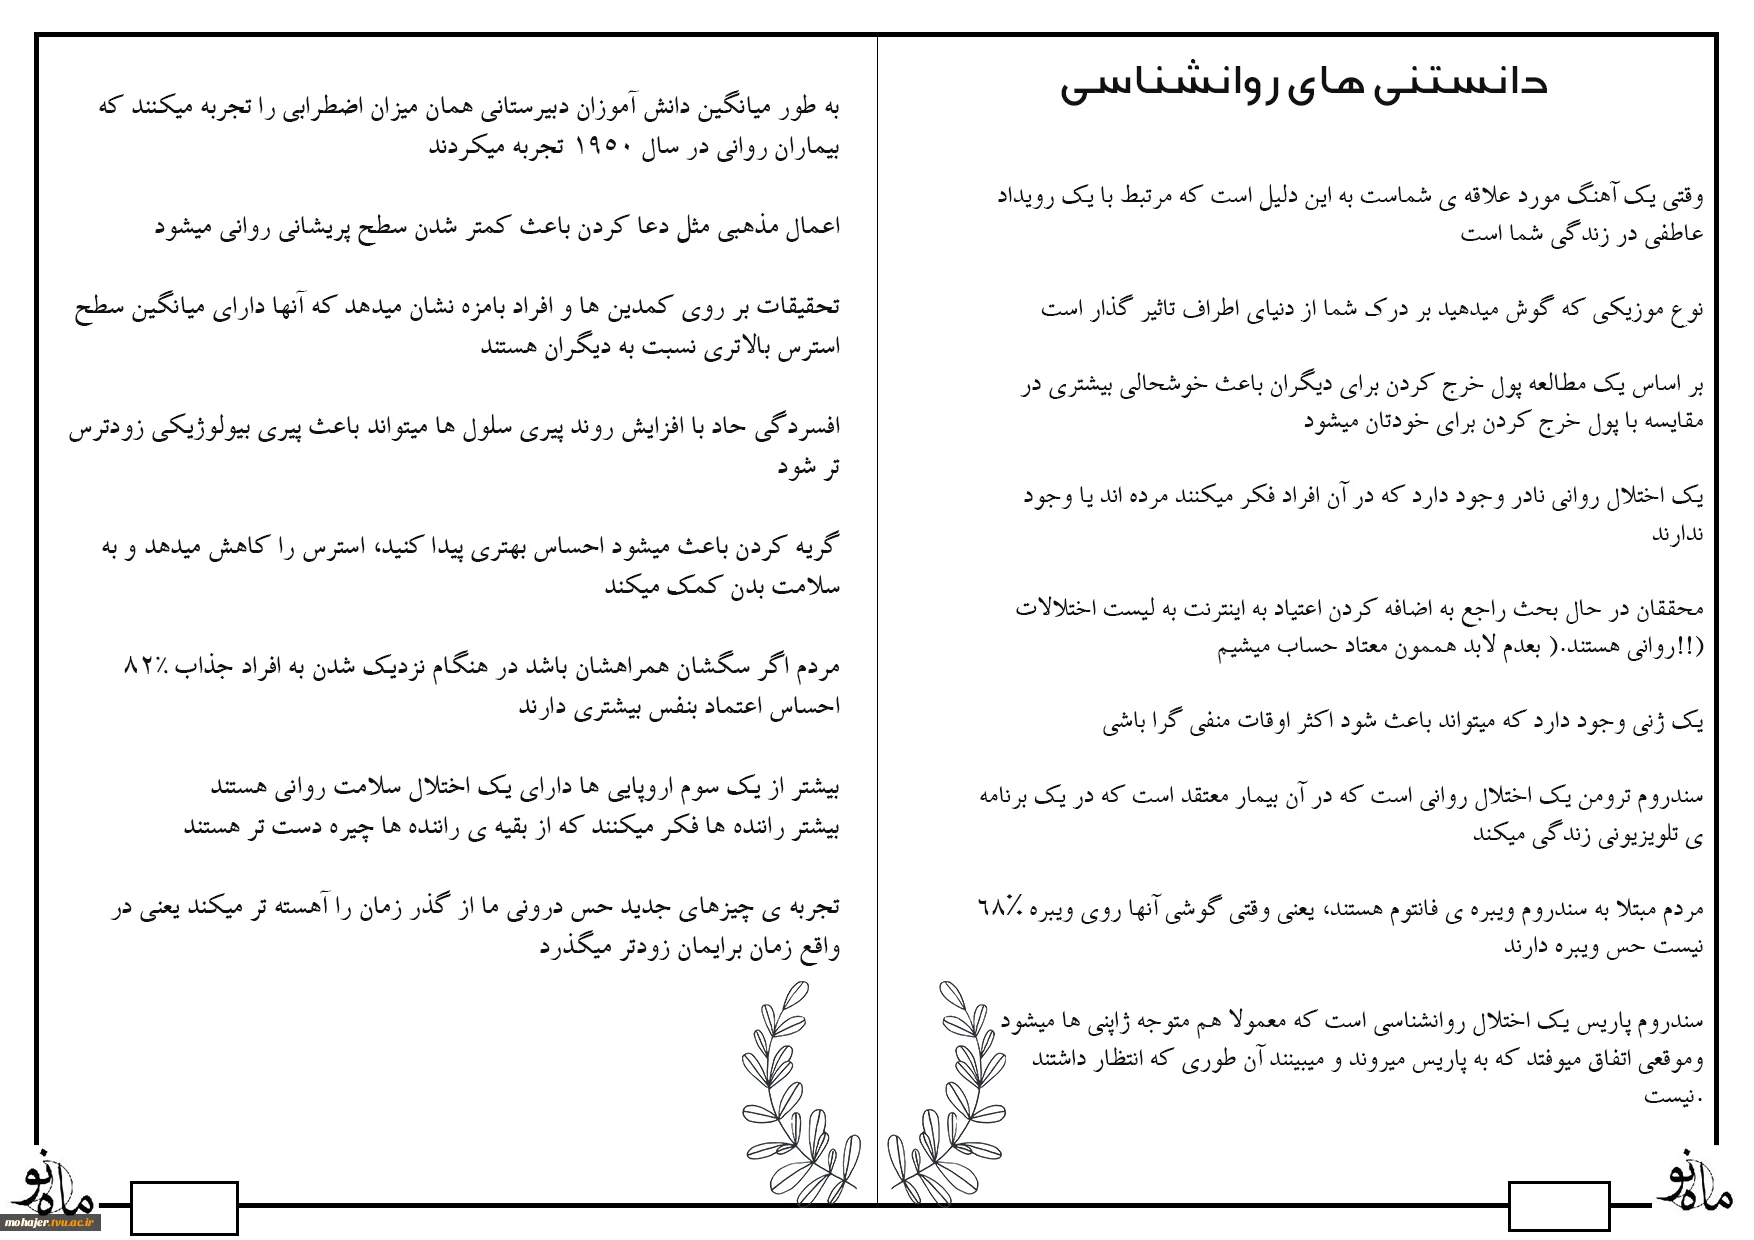 دانستنی های روانشناسی
وقتی یک آهنگ مورد علاقه ی شماست به این دلیل است که مرتبط با یک رویداد
عاطفی در زندگی شما است
نوع موزیکی که گوش میدهید بر درک شما از دنیای اطراف تاثیر گذار است
بر اساس یک مطالعه پول خرج کردن برای دیگران باعث خوشحالی بیشتری در
مقایسه با پول خرج کردن برای خودتان میشود
یک اختلال روانی نادر وجود دارد که در آن افراد فکر میکنند مرده اند یا وجود
ندارند
محققان در حال بحث راجع به اضافه کردن اعتیاد به اینترنت به لیست اختلالات
(!!روانی هستند.( بعدم لابد هممون معتاد حساب میشیم
یک ژنی وجود دارد که میتواند باعث شود اکثر اوقات منفی گرا باشی
سندروم ترومن یک اختلال روانی است که در آن بیمار معتقد است که در یک برنامه
ی تلویزیونی زندگی میکند
مردم مبتلا به سندروم ویبره ی فانتوم هستند، یعنی وقتی گوشی آنها روی ویبره ٪۶۸
نیست حس ویبره دارند
سندروم پاریس یک اختلال روانشناسی است که معمولا هم متوجه ژاپنی ها میشود
وموقعی اتفاق میوفتد که به پاریس میروند و میبینند آن طوری که انتظار داشتند
.نیست
به طور میانگین دانش آموزان دبیرستانی همان میزان اضطرابی را تجربه میکنند که
بیماران روانی در سال ۱۹۵۰ تجربه میکردند
اعمال مذهبی مثل دعا کردن باعث کمتر شدن سطح پریشانی روانی میشود
تحقیقات بر روی کمدین ها و افراد بامزه نشان میدهد که آنها دارای میانگین سطح
استرس بالاتری نسبت به دیگران هستند
افسردگی حاد با افزایش روند پیری سلول ها میتواند باعث پیری بیولوژیکی زودترس
تر شود
گریه کردن باعث میشود احساس بهتری پیدا کنید، استرس را کاهش میدهد و به
سلامت بدن کمک میکند
مردم اگر سگشان همراهشان باشد در هنگام نزدیک شدن به افراد جذاب ٪۸۲
احساس اعتماد بنفس بیشتری دارند
بیشتر از یک سوم اروپایی ها دارای یک اختلال سلامت روانی هستند
بیشتر راننده ها فکر میکنند که از بقیه ی راننده ها چیره دست تر هستند
تجربه ی چیزهای جدید حس درونی ما از گذر زمان را آهسته تر میکند یعنی در
واقع زمان برایمان زودتر میگذرد
ماه نو
ماه نو
mohajer.tvu.ac.ir